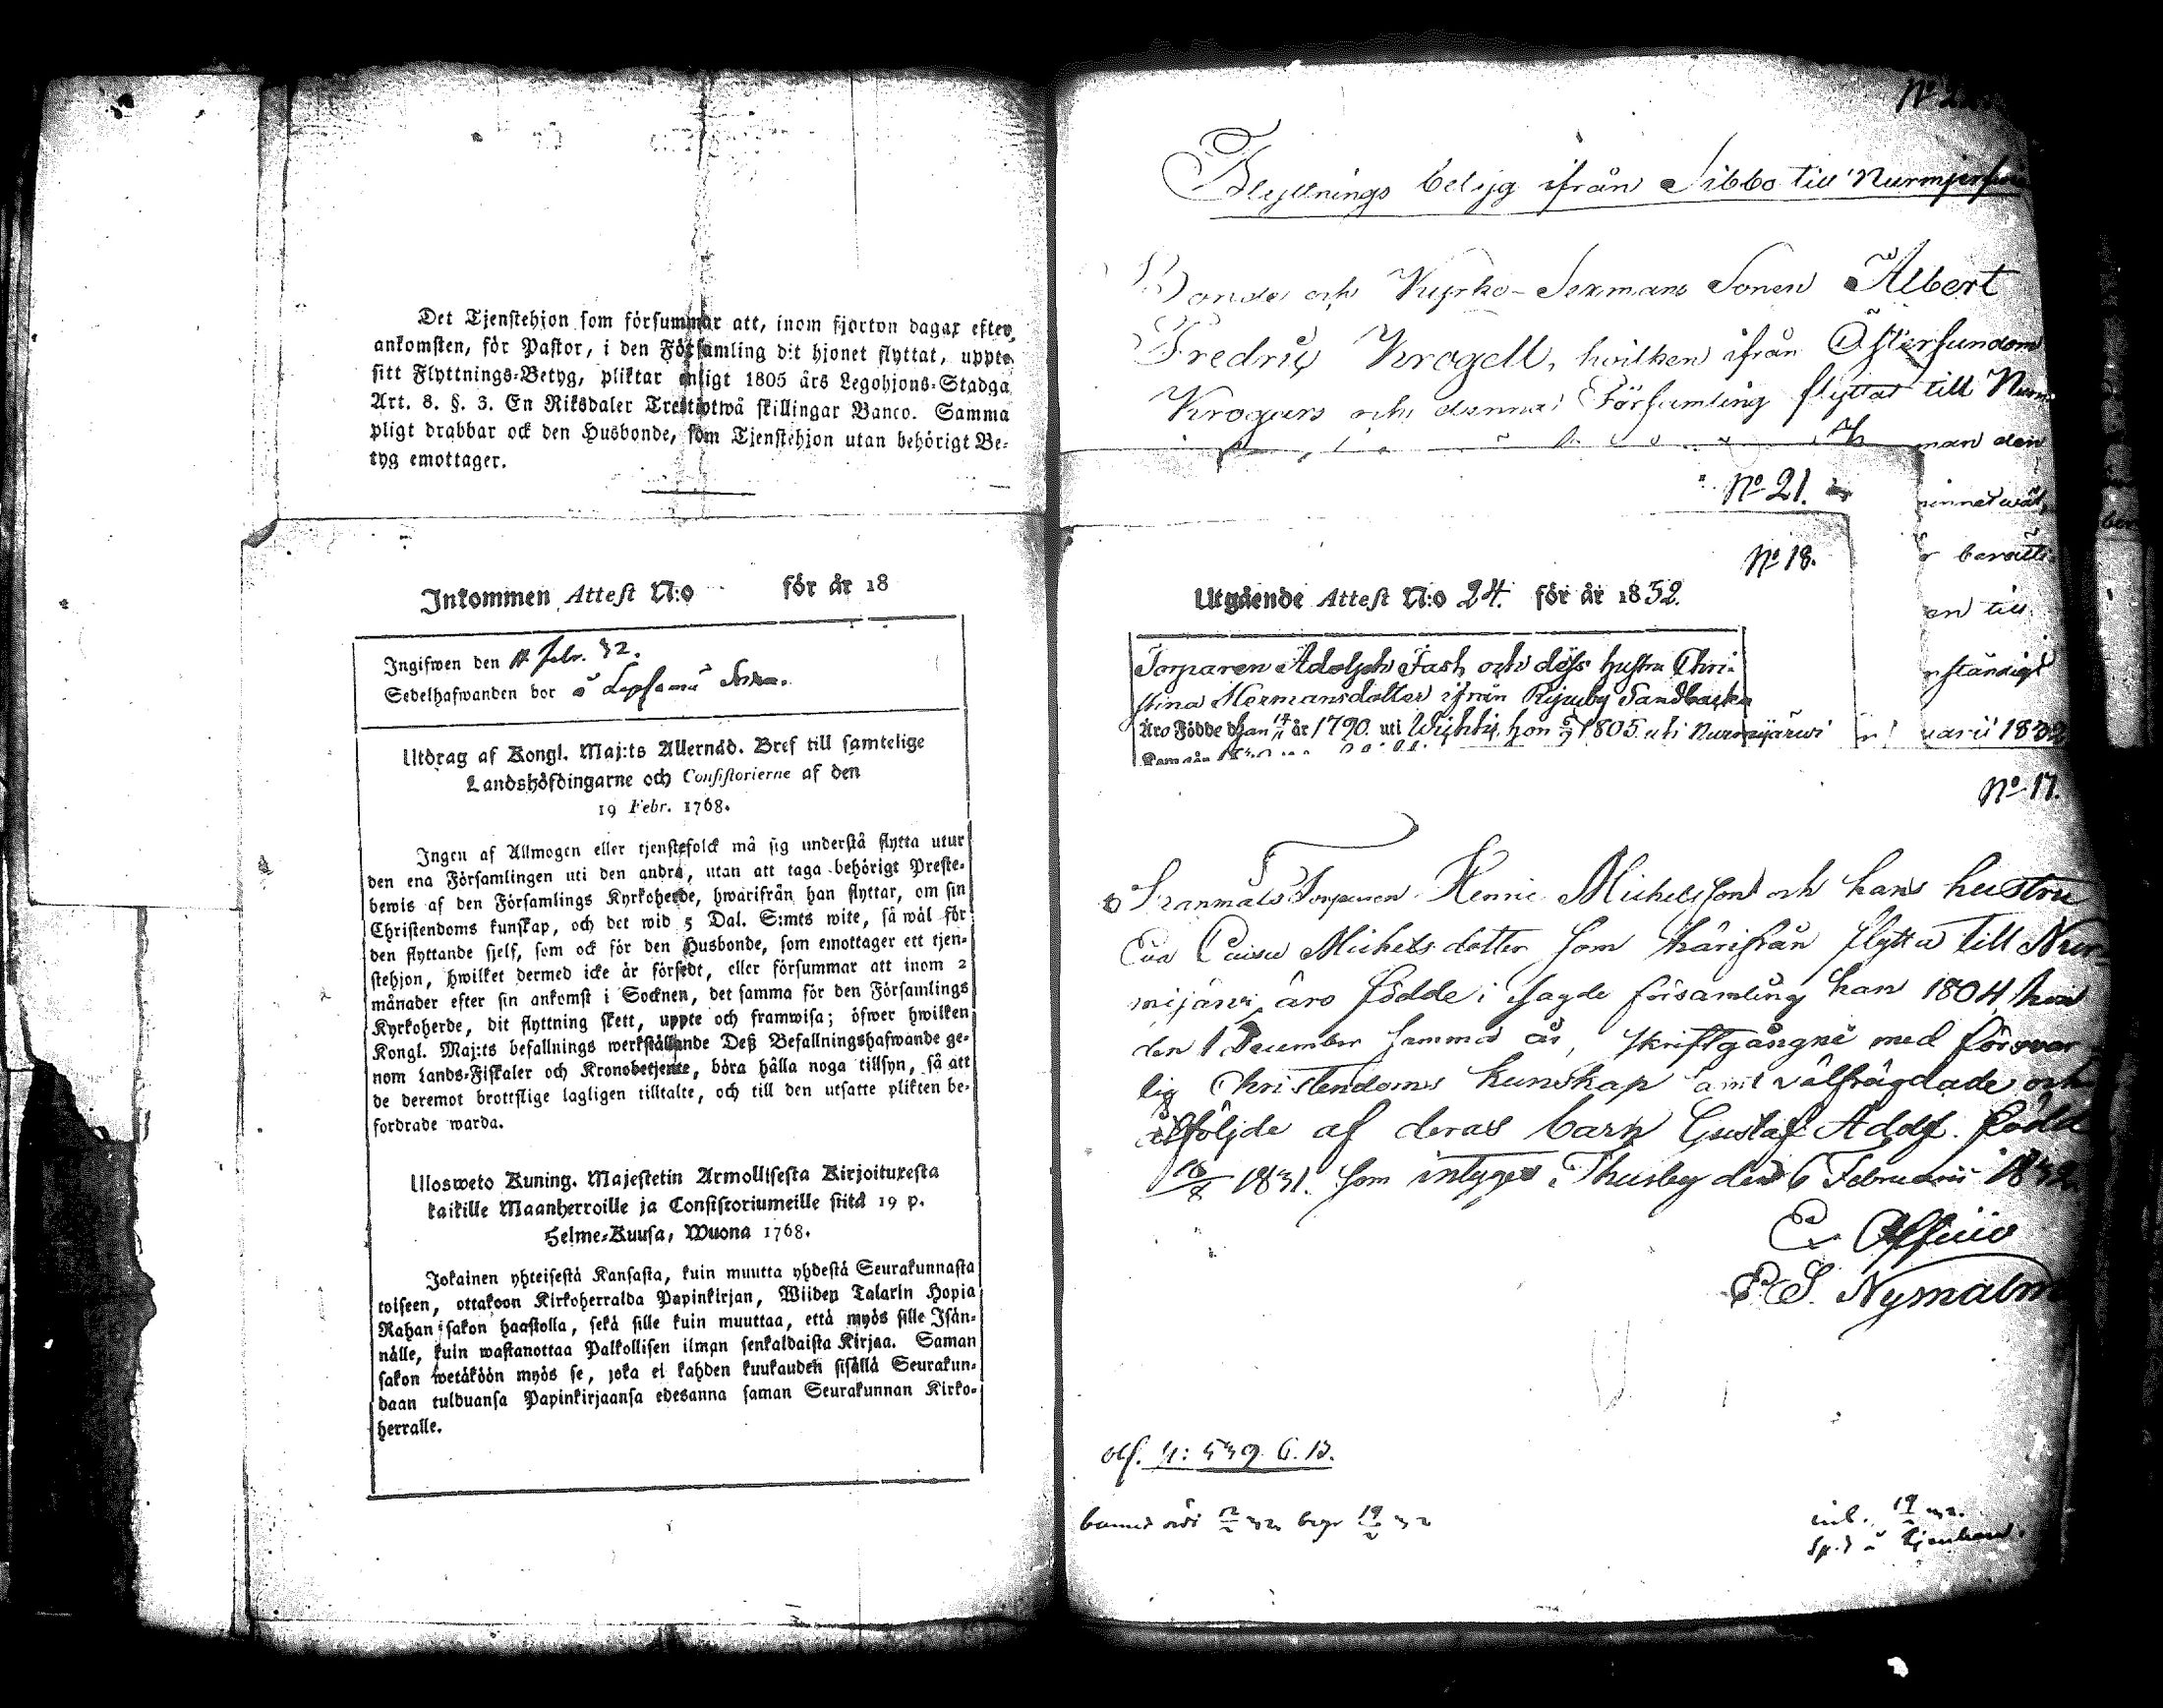 Det Tjenstehjon som försummar att, inom fjorton dagar efter
ankomsten, för Pastor, i den Församling dit hjonet flyttat, uppte
sitt Flyttnings-Betyg, pliktar enligt 1805 års Legohjons-Stadga
Art. 8. §. 3. En Riksdaler Trettiotwå skillingar Banco. Samma
pligt drabbar ock den Husbonde, som Tjenstehjon utan behörigt Be-
tyg emottager.
Inkommen Attest N:o för år 18
Ingifwen den febr. 32.
Sedelhafwanden bor
Utdrag af Kongl. Maj:ts Allernåd. Bref till samtelige
Landshöfdingarne och Consistorierne af den
19 Febr. 1768.
Ingen af Allmogen eller tjenstefolck må sig understå flytta utur
den ena Församlingen uti den andra, utan att taga behörigt Preste-
bewis af den Församlings Kyrkoherde, hwarifrån han flyttar, om sin
Christendoms kunskap, och det wid 5 Dal. S:mts wite, så wäl för
den flyttande sjelf, som ock för den Husbonde, som emottager ett tjen-
stehjon, hwilket dermed icke är försedt, eller försummar att inom 2
månader efter sin ankomst i Socknen, det samma för den Församlings
Kyrkoherde, dit flyttning skett, uppte och framwisa; öfwer hwilken
Kongl. Maj:ts befallnings werkställande Deß Befallningshafwande ge-
nom Lands-Fiskaler och Kronobetjente, böra hålla noga tillsyn, så att
de deremot brottslige lagligen tilltalte, och till den utsatte plikten be-
fordrade warda.
Ulosweto Kuning. Majestetin Armollisesta Kirjoituxesta
kaikille Maanherroille ja Consistoriumeille siitä 19 p.
Helme-Kuusa, Wuona 1768.
Jokainen yhteisestä Kansasta, kuin muutta yhdestä Seurakunnasta
toiseen, ottakoon Kirkoherralda Papinkirjan, Wiiden Talarin Hopia
Rahan sakon haastolla, sekä sille kuin muuttaa, että myös sille Isän-
nälle, kuin wastanottaa Palkollisen ilman senkaldaista Kirjaa. Saman
sakon wetäköön myös se, joka ei kahden kuukauden sisällä Seurakun-
daan tulduansa Papinkirjaansa edesanna saman Seurakunnan Kirko-
herralle.
Flyttnings betyg ifrån Sibbo till Nurmijerfvi
Bonde och Kyrko-Sexmans Sonen Albert
Fredric Krogell, hvilken ifrån Östersundom
Krogars och denna Församling flyttat till Nurmi
man den
No 21.
No 18.
Utgående Attest N:o 24. för år 1832.
Torparen Adolph Fast och dess hustru Chri-
stina Hermansdotter ifrån Sandbacka
Äro Födde han 14/11 år 1790. uti Wichtis, hon 1805 uti Nurmijärwi
uarii 1832
No 17.
Torparen Henric Michelsson och hans hustru
Eva Caisa Michelsdotter som härifrån flytta till Nur-
mijärvi äro födde i sagde församling han 1804, hon
den 1 December samma år, skriftgångne med försvar-
lig Christendoms kunskap samt välfrägdade och
åtföljde af deras barn Gustaf Adolf född
16/8 1831. som intygas, Thusby den 6 Februarii 1832.
Ex Officio
Nymalm